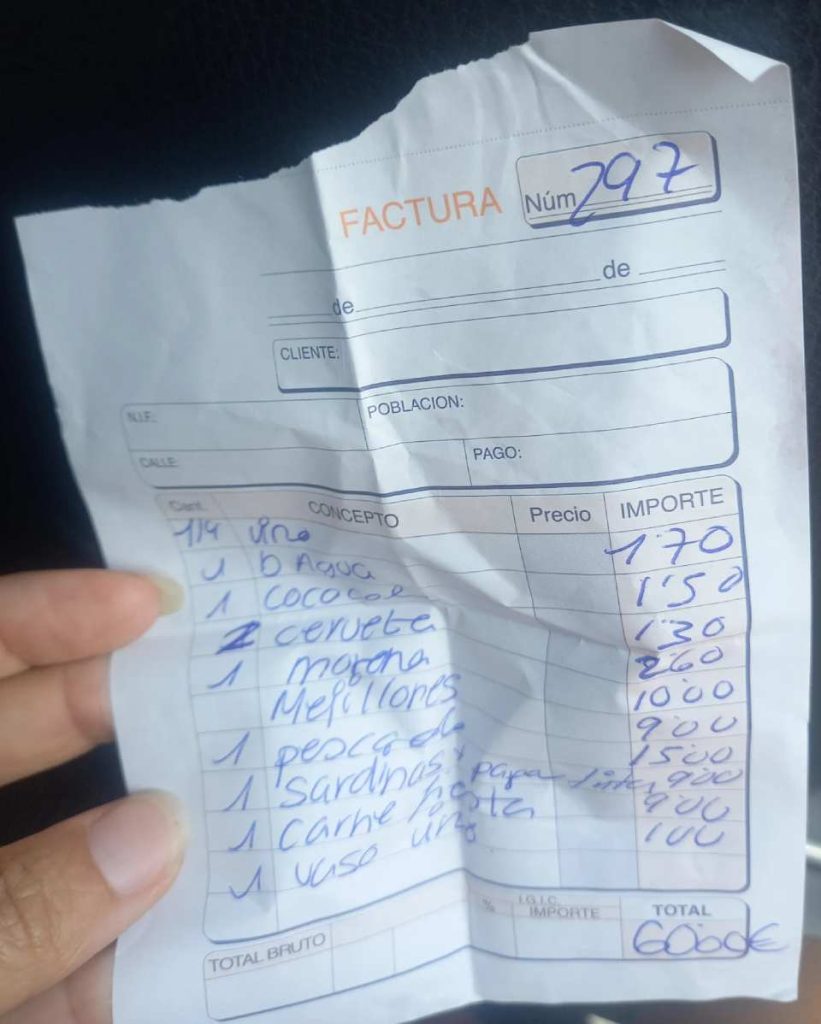 FACTURA Núm 297
de de
CLIENTE:
N.I.F.: POBLACION:
CALLE: PAGO:
Cant. CONCEPTO Precio IMPORTE
1/4 vino 1'70
1 b Agua 1'50
1 cococol 1'30
2 cerveta 2'60
1 morena 10'00
Mejillores 9'00
1 pescado 15'00
1 sardinas y papa 9'00
1 carne fiesta 9'00
1 vaso vino 1'00
TOTAL BRUTO % I.G.I.C. IMPORTE TOTAL
6060€